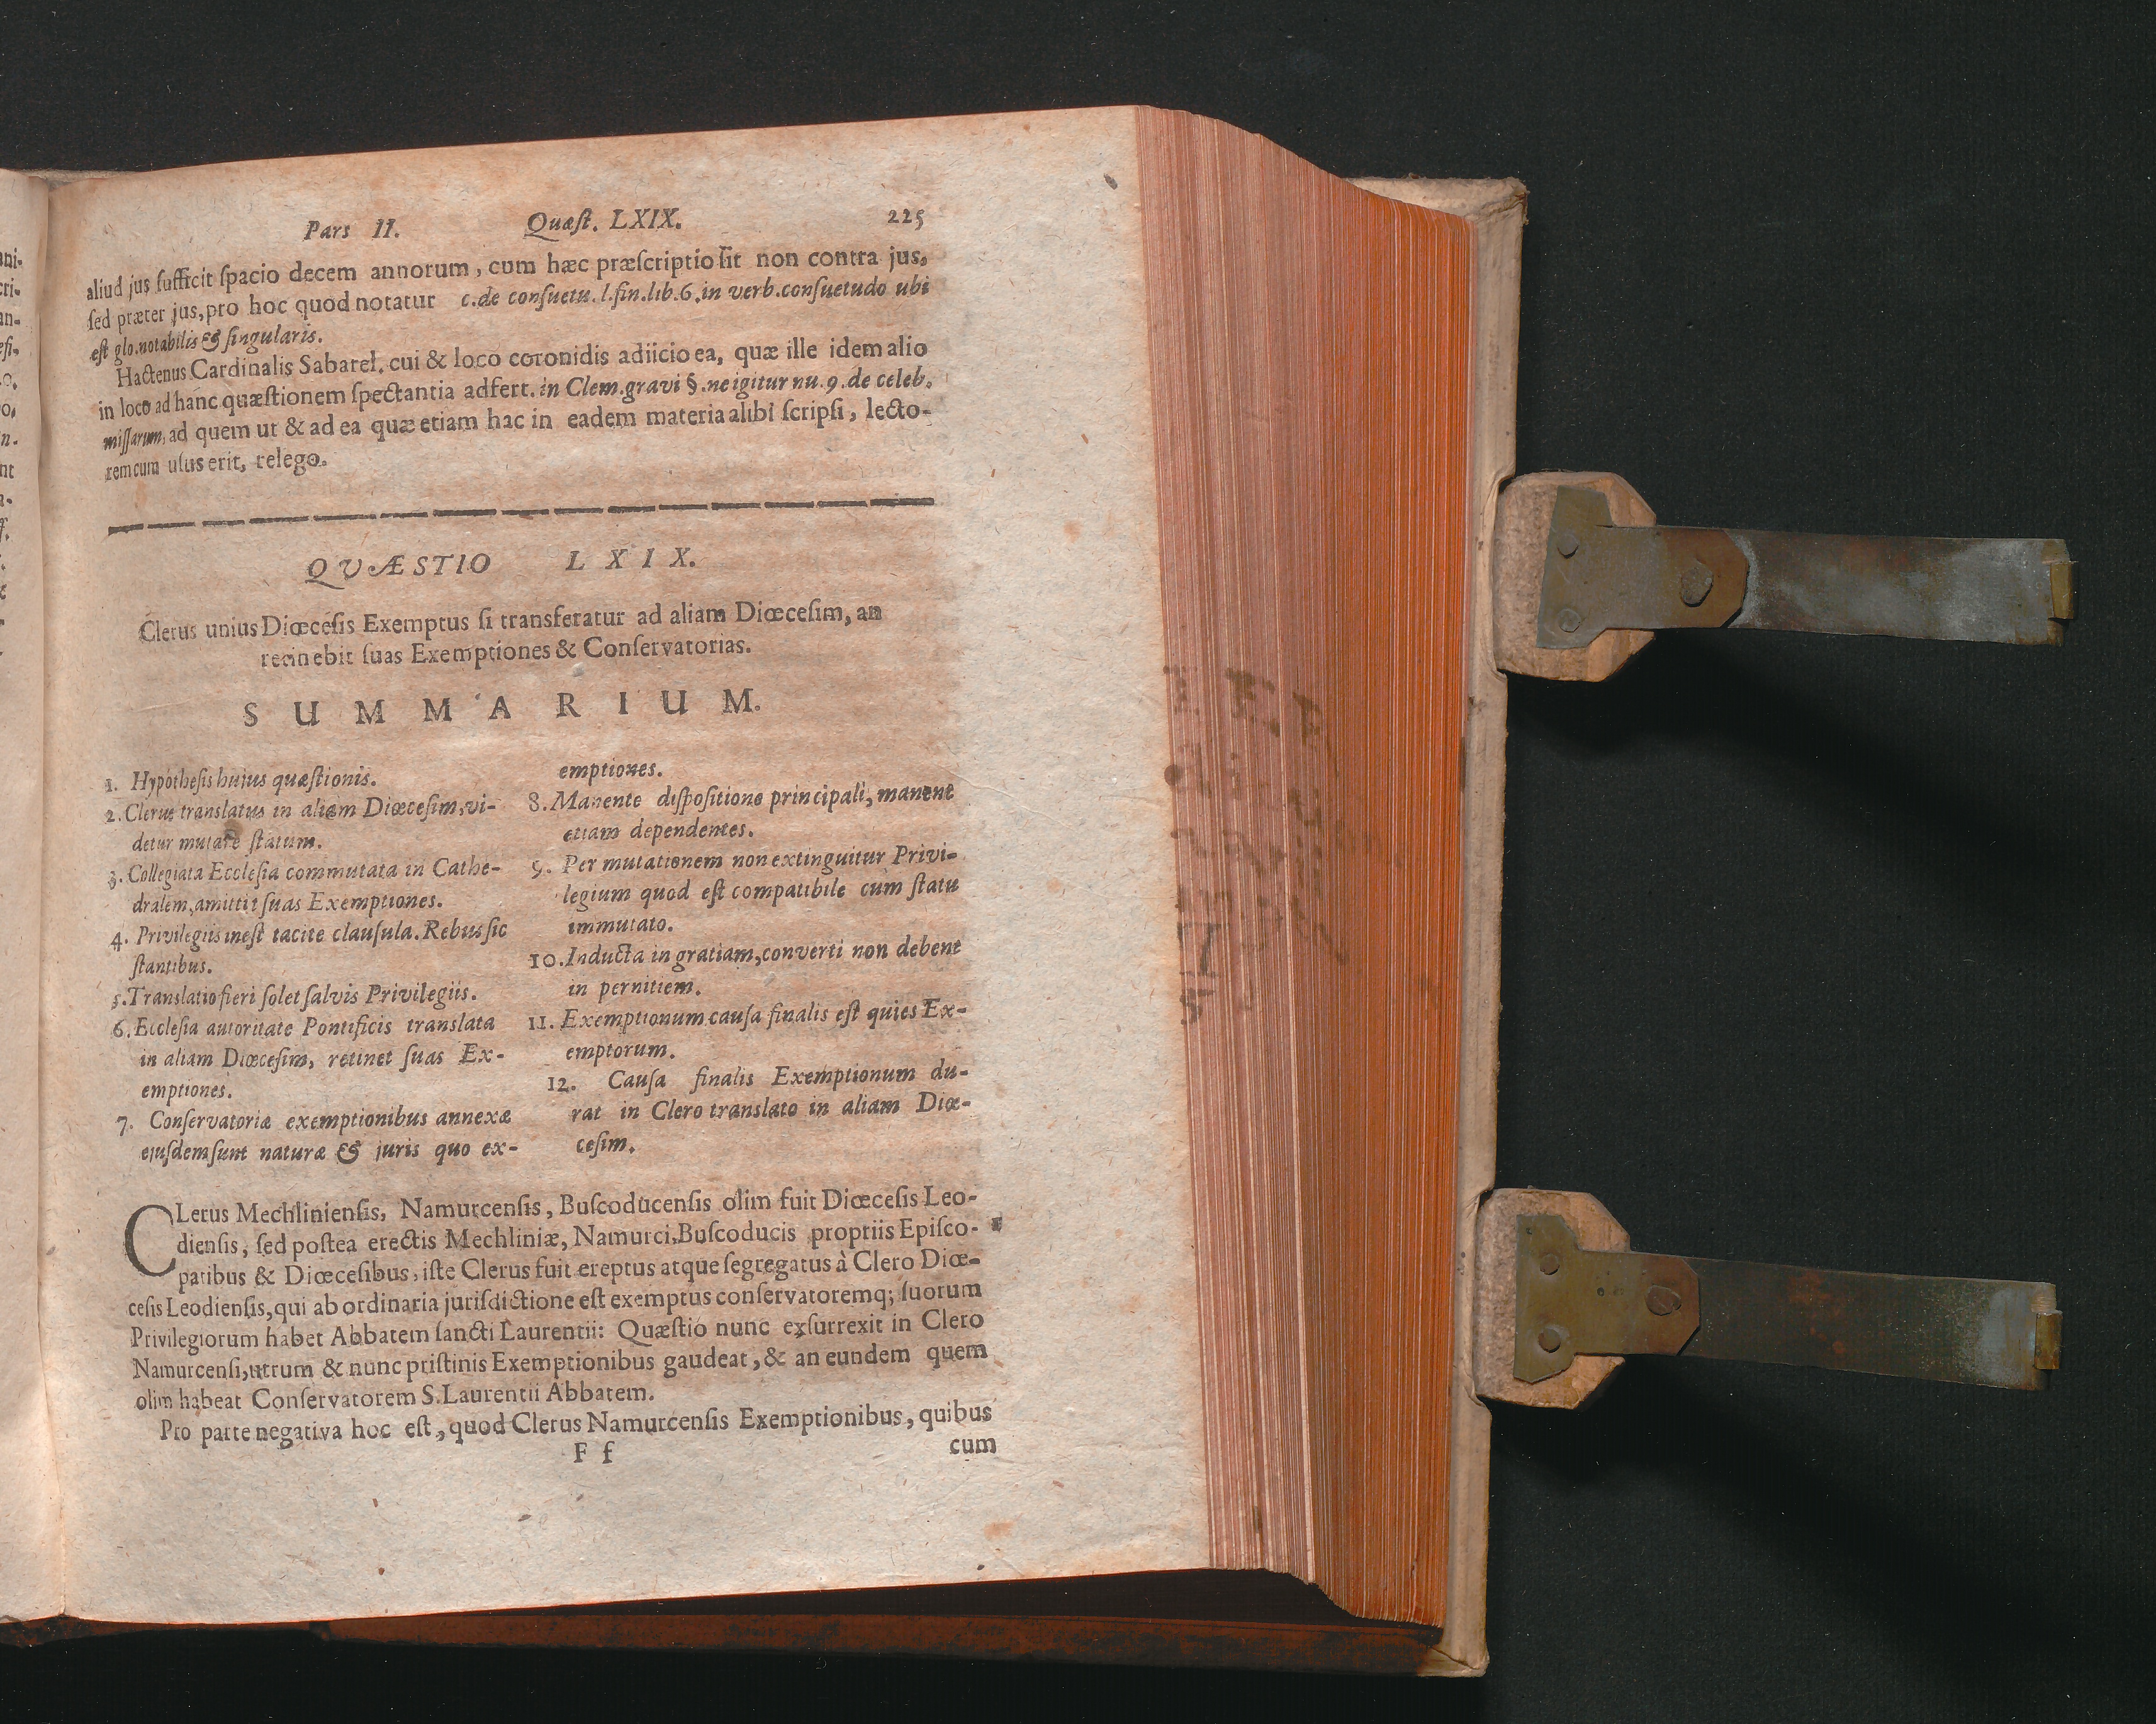 Pars II. Quæſt. LXIX. 225
aliud jus ſufficit ſpacio decem annorum, cum hæc præſcriptio ſit non contra jus,
ſed præter jus, pro hoc quod notatur c. de conſuetu. l. fin. lib. 6. in verb. conſuetudo ubi
eſt glo. notabilis & ſingularis.
Hactenus Cardinalis Sabarel. cui & loco coronidis adiicio ea, quæ ille idem alio
in loco ad hanc quæſtionem ſpectantia adfert. in Clem. gravi §. ne igitur nu. 9. de celeb.
miſſarum, ad quem ut & ad ea quæ etiam hac in eadem materia alibi ſcripſi, lecto-
rem cum uſus erit, relego.
QVÆSTIO LXIX.
Clerus unius Diœceſis Exemptus ſi transferatur ad aliam Diœceſim, an
retinebit ſuas Exemptiones & Conſervatorias.
SUMMARIUM.
1. Hypotheſis hujus quæſtionis.
2. Clerus translatus in aliam Diœceſim, vi-
detur mutare ſtatum.
3. Collegiata Eccleſia commutata in Cathe-
dralem, amittit ſuas Exemptiones.
4. Privilegiis ineſt tacite clauſula. Rebus ſic
ſtantibus.
5. Translatio fieri ſolet ſalvis Privilegiis.
6. Eccleſia autoritate Pontificis translata
in aliam Diœceſim, retinet ſuas Ex-
emptiones.
7. Conſervatoriæ exemptionibus annexæ
ejuſdem ſunt naturæ & juris quo ex-
emptiones.
8. Manente diſpoſitione principali, manent
etiam dependentes.
9. Per mutationem non extinguitur Privi-
legium quod eſt compatibile cum ſtatu
immutato.
10. Inducta in gratiam, converti non debent
in pernitiem.
11. Exemptionum cauſa finalis eſt quies Ex-
emptorum.
12. Cauſa finalis Exemptionum du-
rat in Clero translato in aliam Diœ-
ceſim.
CLerus Mechlinienſis, Namurcenſis, Buſcoducenſis olim fuit Diœceſis Leo-
dienſis, ſed poſtea erectis Mechliniæ, Namurci, Buſcoducis propriis Epiſco-
patibus & Diœceſibus, iſte Clerus fuit ereptus atque ſegregatus à Clero Diœ-
ceſis Leodienſis, qui ab ordinaria juriſdictione eſt exemptus conſervatoremq; ſuorum
Privilegiorum habet Abbatem ſancti Laurentii: Quæſtio nunc exſurrexit in Clero
Namurcenſi, utrum & nunc priſtinis Exemptionibus gaudeat, & an eundem quem
olim habeat Conſervatorem S. Laurentii Abbatem.
Pro parte negativa hoc eſt, quod Clerus Namurcenſis Exemptionibus, quibus
F f cum